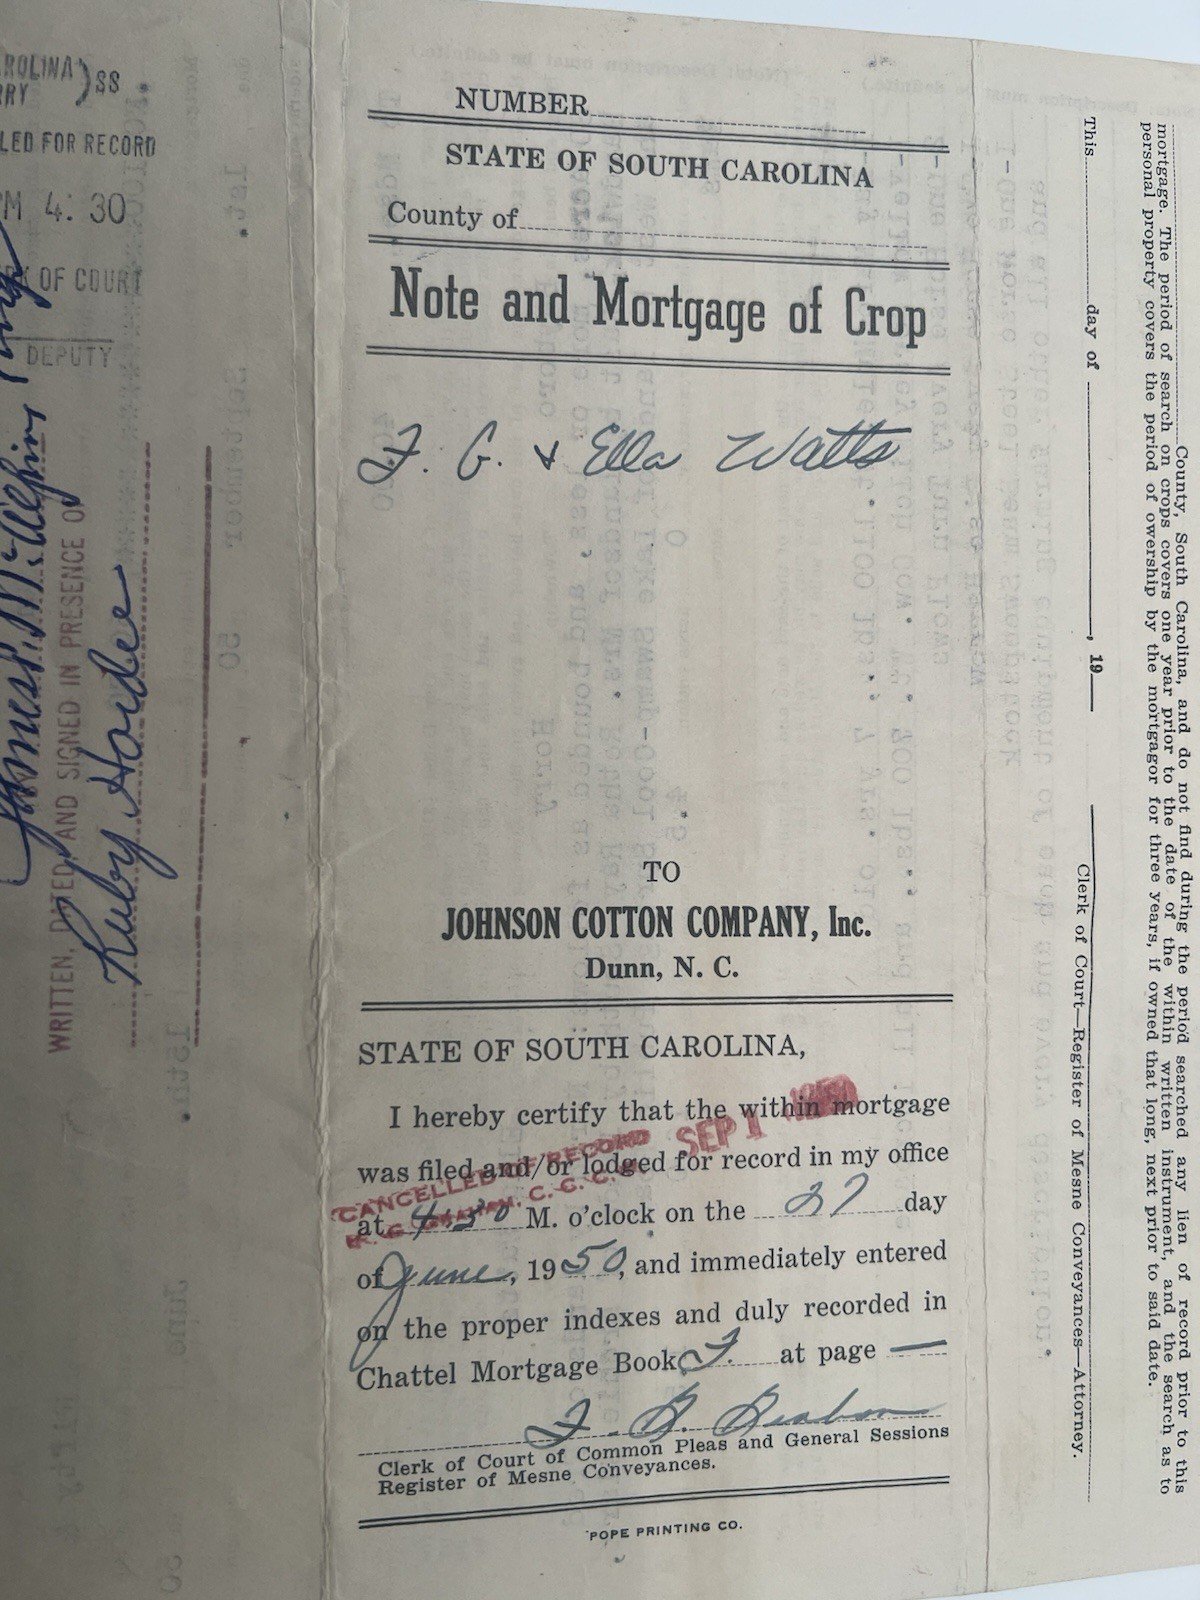 NUMBER
STATE OF SOUTH CAROLINA
County of
Note and Mortgage of Crop
F. G. & Ella Watts
TO
JOHNSON COTTON COMPANY, Inc.
Dunn, N. C.
STATE OF SOUTH CAROLINA,
I hereby certify that the within mortgage
was filed and/or lodged for record in my office
at 4:30 M. o'clock on the 27 day
of June, 1950, and immediately entered
on the proper indexes and duly recorded in
Chattel Mortgage Book F. at page —
Clerk of Court of Common Pleas and General Sessions
Register of Mesne Conveyances.
POPE PRINTING CO.
SEP 1 1950
CANCELLED OF RECORD
C. C. C.
ROLINA) SS
RRY
LED FOR RECORD
PM 4:30
OF COURT
DEPUTY
WRITTEN, DATED, AND SIGNED IN PRESENCE OF
Ruby Hardee
County, South Carolina, and do not find during the period searched any lien of record prior to this
mortgage. The period of search on crops covers one year prior to the date of the within written instrument, and the search as to
personal property covers the period of owership by the mortgagor for three years, if owned that long, next prior to said date.
This day of , 19
Clerk of Court—Register of Mesne Conveyances—Attorney.